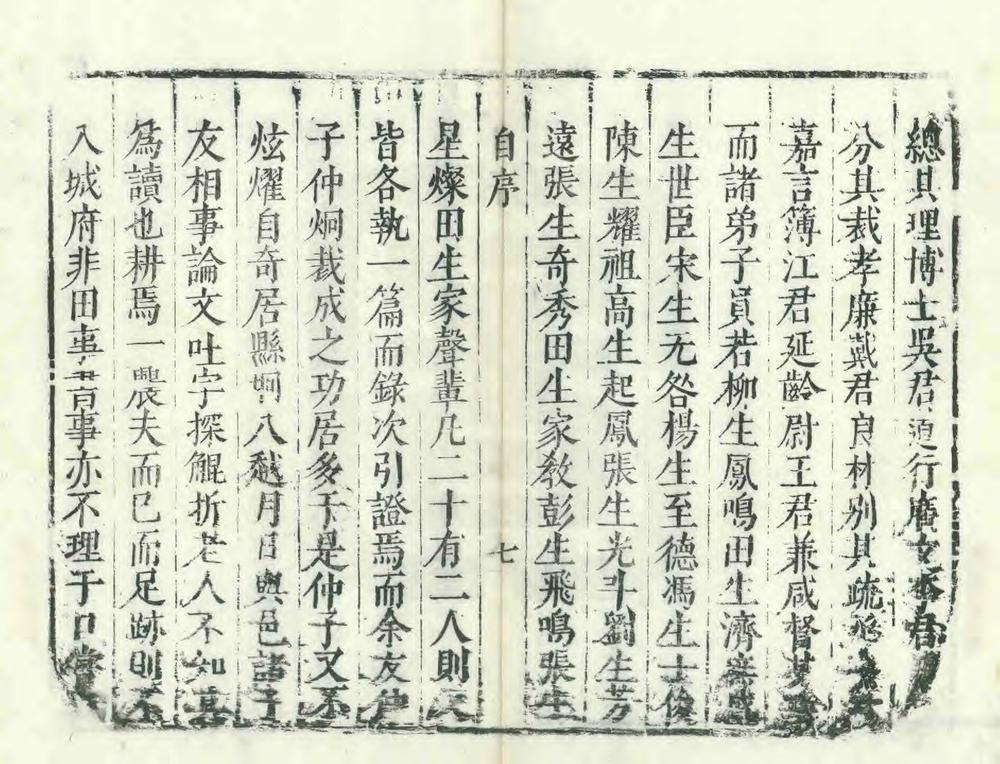 總其理博士吳君道行廣文李春
分其裁孝廉戴君良材别其疏
嘉言簿江君延齡尉王君兼咸督其
而諸弟子員若柳生鳳鳴田生濟
生世臣宋生无咎楊生至德馮生士俊
陳生耀祖高生起鳳張生光斗劉生芳
遠張生奇秀田生家教彭生飛鳴張生
自序
七
星燦田生家聲輩凡二十有二人則又
皆各執一篇而錄次引證焉而余友
子仲炯裁成之功居多于是仲子又不
炫燿自奇居縣坰八越月日與邑諸子
友相事論文吐字探觚折老人不知其
為讀也耕焉一農夫而已而足跡則不
入城府非田事昔事亦不理于口